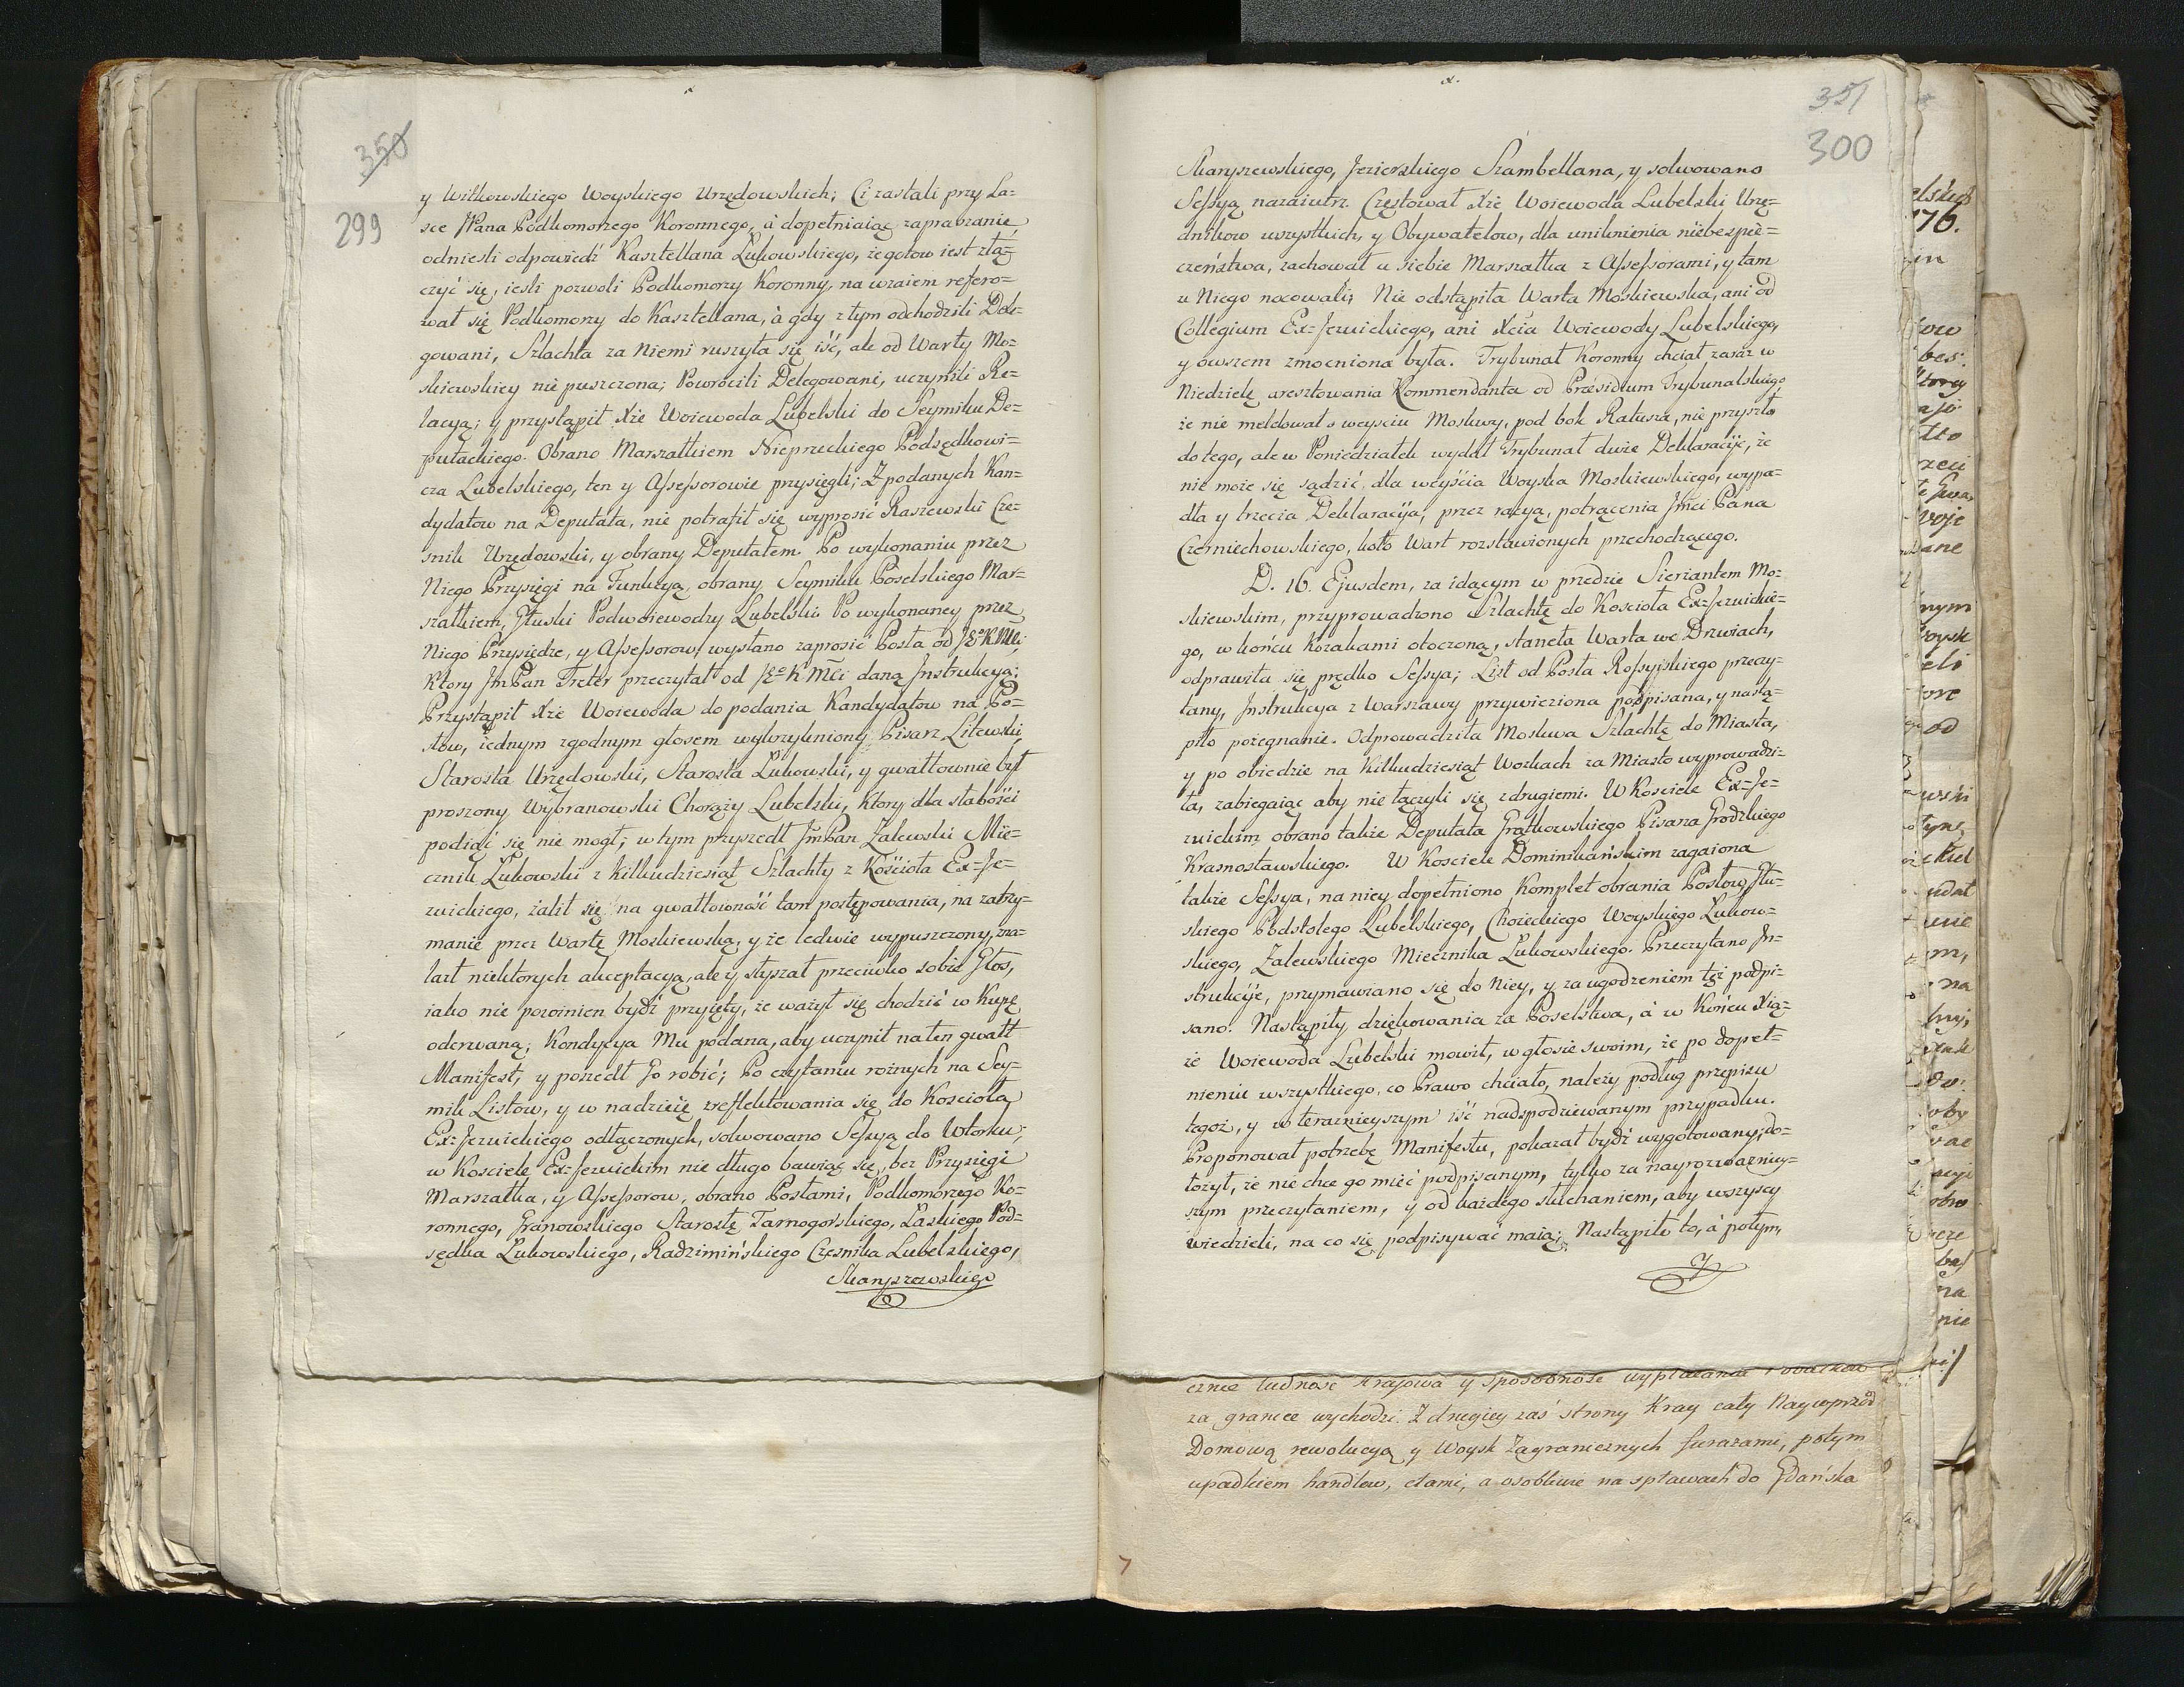 350
299
y Witkowskiego Woyskiego Urzędowskich; Ci zastali przy La=
sce JPana Podkomorzego Koronnego, à dopełniaiąc zaprabzanie
odniesli odpowiedź Kasztellana Łukowskiego, że gotow iest złą=
czyć się, iesli pozwoli Podkomorzy Koronny, na wzaiem refero=
wał się Podkomorzy do Kasztellana, à gdy z tym odchodzili Dele=
gowani, Szlachta za Niemi ruszyła się iść, ale od Warty Mo=
skiewskiey nie puszczona; Powrocili Delegowani, uczynili Re=
lacyą; y przystąpił Xże Woiewoda Lubelski do Seymiku De=
putackiego. Obrano Marszałkiem Nieprzeckiego Podsędkowi=
cza Lubelskiego, ten y Assessorowie przysięgli; Z podanych Kan=
dydatow na Deputata, nie potrafił się wyprosić Raszewski Cze=
snik Urzędowski, y obrany Deputatem. Po wykonaniu przez
Niego Przysięgi na Funkcyą, obrany Seymiku Poselskiego Mar=
szałkiem, Głuski Podwoiewodzy Lubelski. Po wykonaney przez
Niego Przysiędze, y Assessorow, wysłano zaprosić Posła od JEo KMci;
Ktory JmPan Treter przeczytał od JEo KMci daną Jnstrukcyą;
Przystąpił Xże Woiewoda do podania Kandydatow na Po=
słow, iednym zgodnym głosem wykrzykniony Pisarz Litewski,
Starosta Urzędowski, Starosta Łukowski, y gwałtownie był
proszony Wybranowski Chorąży Lubelski, Ktory dla słabości
podiąć się nie mogł; w tym przyszedł JmPan Zalewski Mie=
cznik Łukowski z kilkudziesiąt Szlachty z Kościoła Ex=Je=
zuickiego, żalił się na gwałtowność tam postępowania, na zatrzy=
manie przez Wartę Moskiewską, y że ledwie wypuszczony, zna=
lazł niektorych akceptacyą, ale y słyszał przeciwko sobie Głos,
iako nie powinien bydź przyięty, że ważył się chodzić w Kupę
oderwaną; Kondycya Mu podana, aby uczynił na ten gwałt
Manifest, y poszedł Go robić; Po czytaniu rożnych na Sey=
mik Listow, y w nadzieię zreflektowania się do Kościoła
Ex=Jezuickiego odłączonych, solwowano Sessyą do Wtorku;
w Kościele Ex=Jezuickim nie długo bawiąc się, bez Przysięgi
Marszałka, y Assessorow, obrano Posłami, Podkomorzego Ko=
ronnego, Granowskiego Starostę Tarnogorskiego, Łaskiego Pod=
sędka Łukowskiego, Radzimińskiego Cześnika Lubelskiego,
Skaryszewskiego
351
300
Skaryszewskiego, Jezierskiego Szambellana, y solwowano
Sessyą nazaiutrz. Częstował Xże Woiewoda Lubelski Urzę=
dnikow wszystkich, y Obywatelow, dla uniknienia niebespie=
czeństwa, zachował u siebie Marszałka z Assessorami, y tam
u Niego nocowali; Nie odstąpiła Warta Moskiewska, ani od
Collegium Ex=Jezuickiego, ani Xcia Woiewody Lubelskiego,
y owszem zmocniona była. Trybunał Koronny chciał zaraz w
Niedzielę aresztowania Kommendanta od Præsidium Trybunalskiego,
że nie meldował o weyściu Moskwy, pod bok Ratusza, nie przyszło
do tego, ale w Poniedziałek wydał Trybunał dwie Deklaracije, że
nie może się sądzić, dla weyścia Woyska Moskiewskiego, wypa=
dła y trzecia Deklaracija, przez racyą, potrącenia Jmci Pana
Czerniechowskiego, koło Wart rozstawionych przechodzącego.
D. 16. Ejusdem, za idącym w przedzie Sierżantem Mo=
skiewskim, przyprowadzono Szlachtę do Kościoła Ex=Jezuickie=
go, w końcu Kozakami otoczoną, staneła Warta we Drzwiach,
odprawiła się prędko Sessya; List od Posła Rossyiskiego przeczy=
tany, Jnstrukcya z Warszawy przywieziona podpisana, y nastą=
piło pożegnanie. Odprowadziła Moskwa Szlachtę do Miasta,
y po obiedzie na Kilkudziesiąt Wozkach za Miasto wyprowadzi=
ła, zabiegaiąc aby nie łączyli się z drugiemi. W Kościele Ex=Je=
zuickim obrano także Deputata Grątkowskiego Pisarza Grodzkiego
Krasnostawskiego. W Kosciele Dominikańskim zagaiona
także Sessya, na niey dopełniono Komplet obrania Posłow, Głu=
skiego Podstolego Lubelskiego, Choieckiego Woyskiego Łukow=
skiego, Zalewskiego Miecznika Łukowskiego. Przeczytano Jn=
strukcije, przymawiano się do Niey, y za ugodzeniem też podpi=
sano. Nastąpiły dziękowania za Poselstwa, à w Końcu Xią=
że Woiewoda Lubelski mowił, w głosie swoim, że po dopeł=
nieniu wszystkiego, co Prawo chciało, należy podług przepisu
tegoż, y w teraznieyszym iść nadspodziewanym przypadku.
Proponował potrzebę Manifestu, pokazał bydź wygotowany; do=
łożył, że nie chce go mieć podpisanym, tylko za nayrozważniey=
szym przeczytaniem, y od każdego słuchaniem, aby wszyscy
wiedzieli, na co się podpisywać maią; Nastąpiło to, à potym,
cznie ludność krajowa y sposobność wypłacania
za granice wychodzi. Z drugiey zaś strony Kray cały Naywprzód
Domową rewolucyą y Woysk Zagranicznych furażami, potym
upadkiem handlow, cłami, a osobliwie na spławach do Gdańska